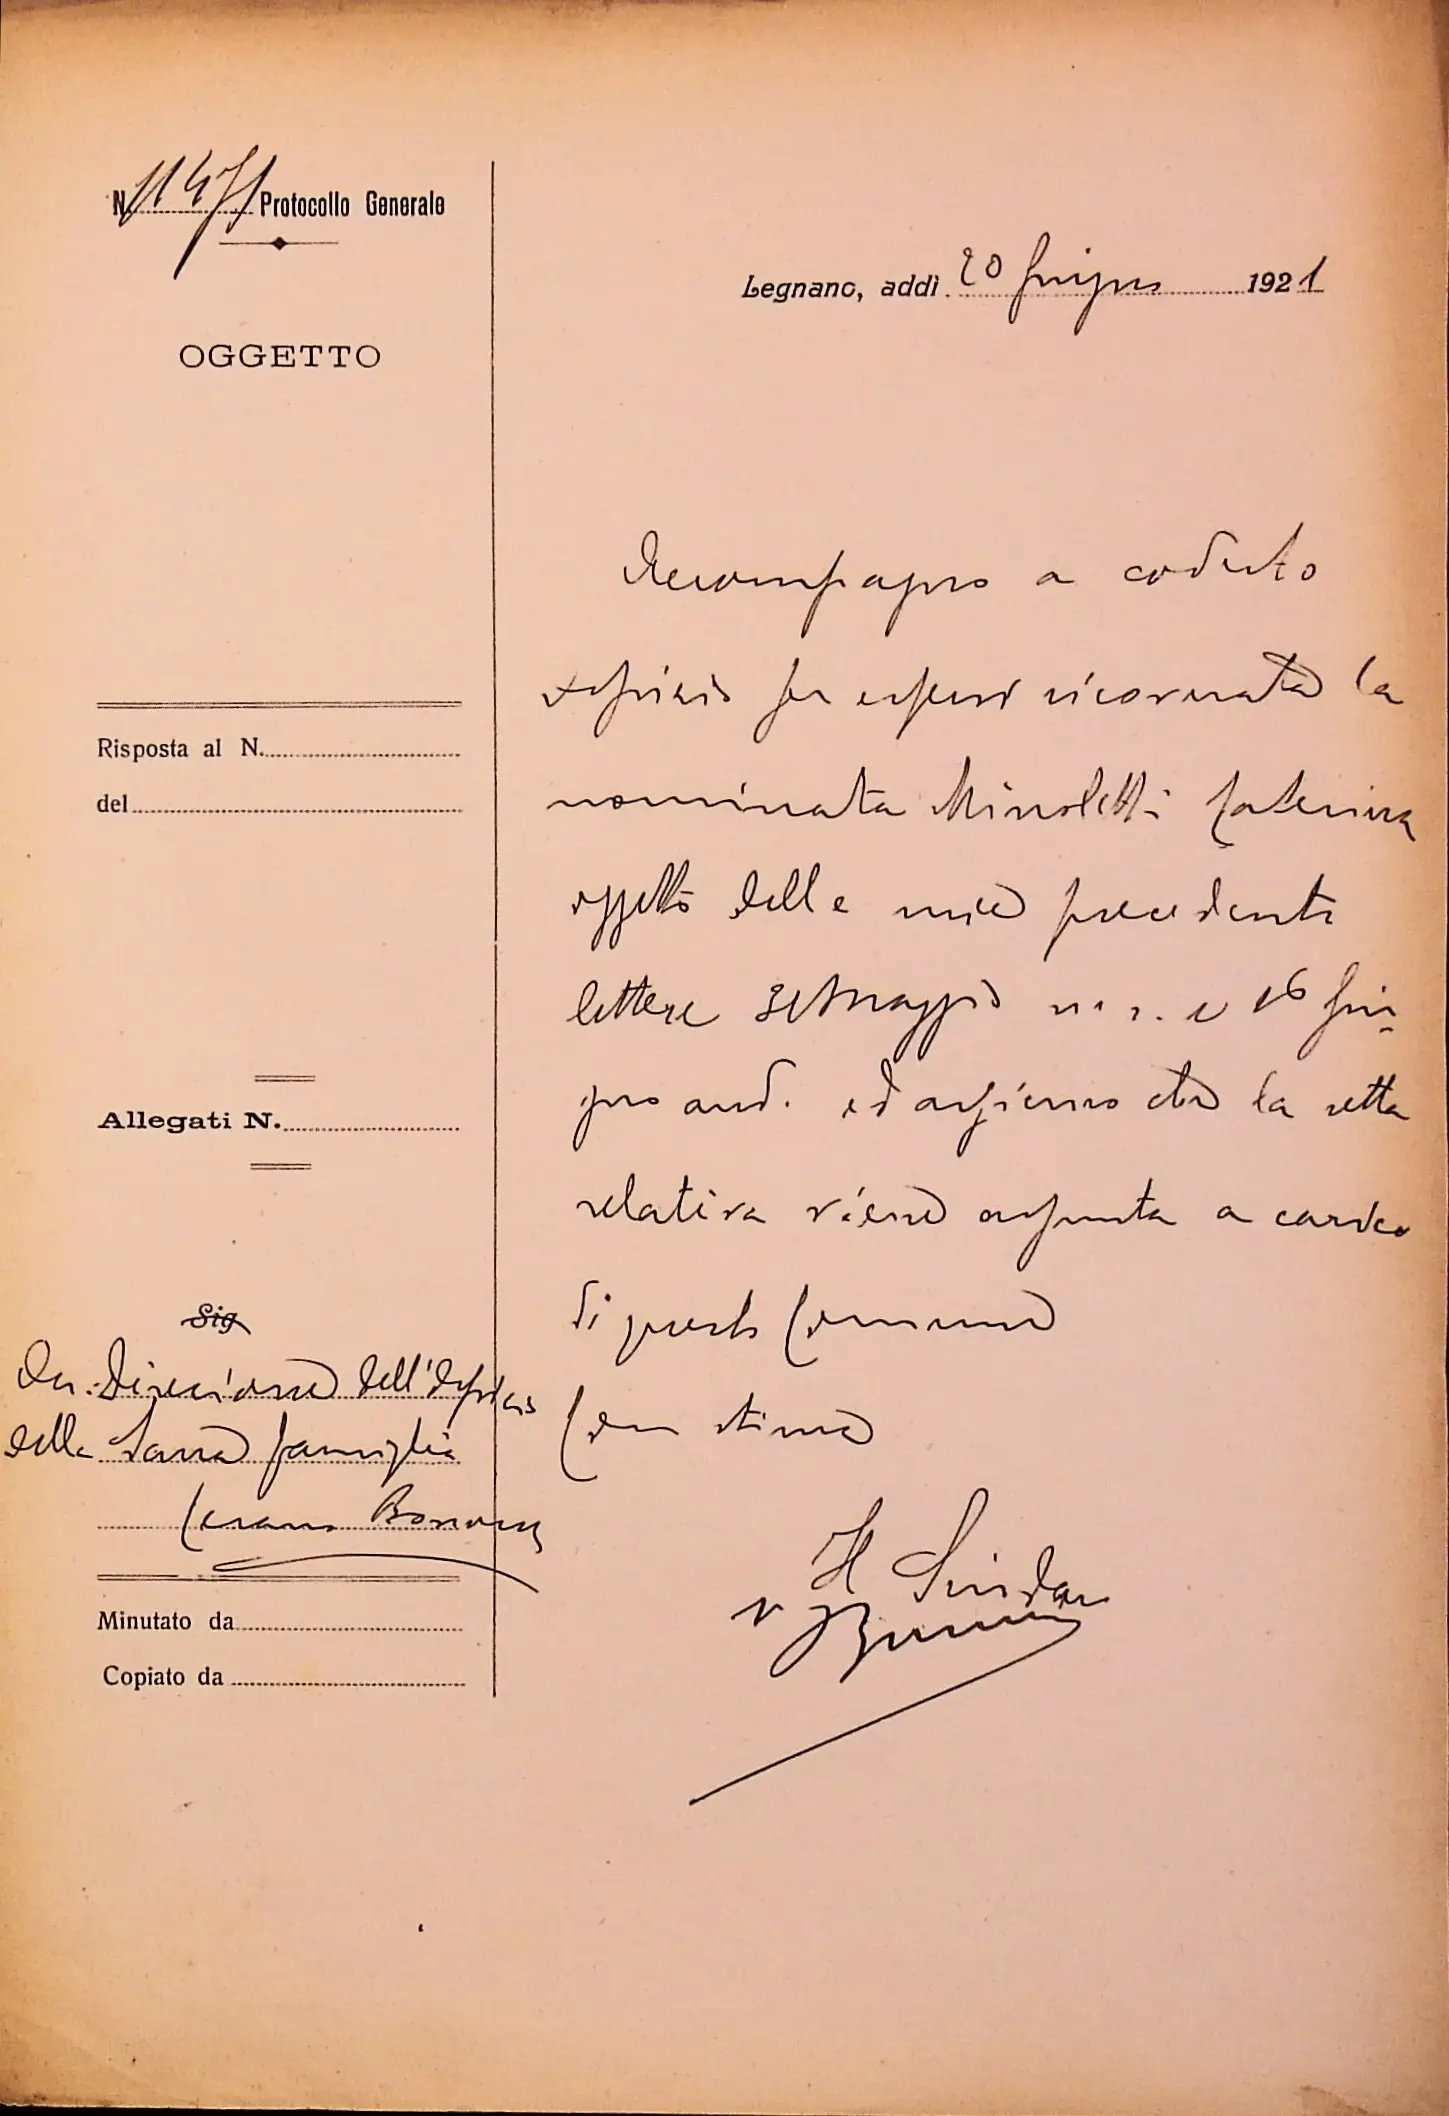 N. 11471 Protocollo Generale
Legnano, addì 20 giugno 1921
OGGETTO
Accompagno a codesto
ospizio per esservi ricoverata la
nominata Minoletti Caterina
oggetto delle mie precedenti
lettere 31 maggio u. s. e 16 giu-
gno and. ed assicuro che la retta
relativa viene assunta a carico
di questo Comune
Con stima
Il Sindaco
Risposta al N.
del
Allegati N.
Sig
On. Direzione dell'Ospizio
della Sacra Famiglia
Cesano Boscone
Minutato da
Copiato da